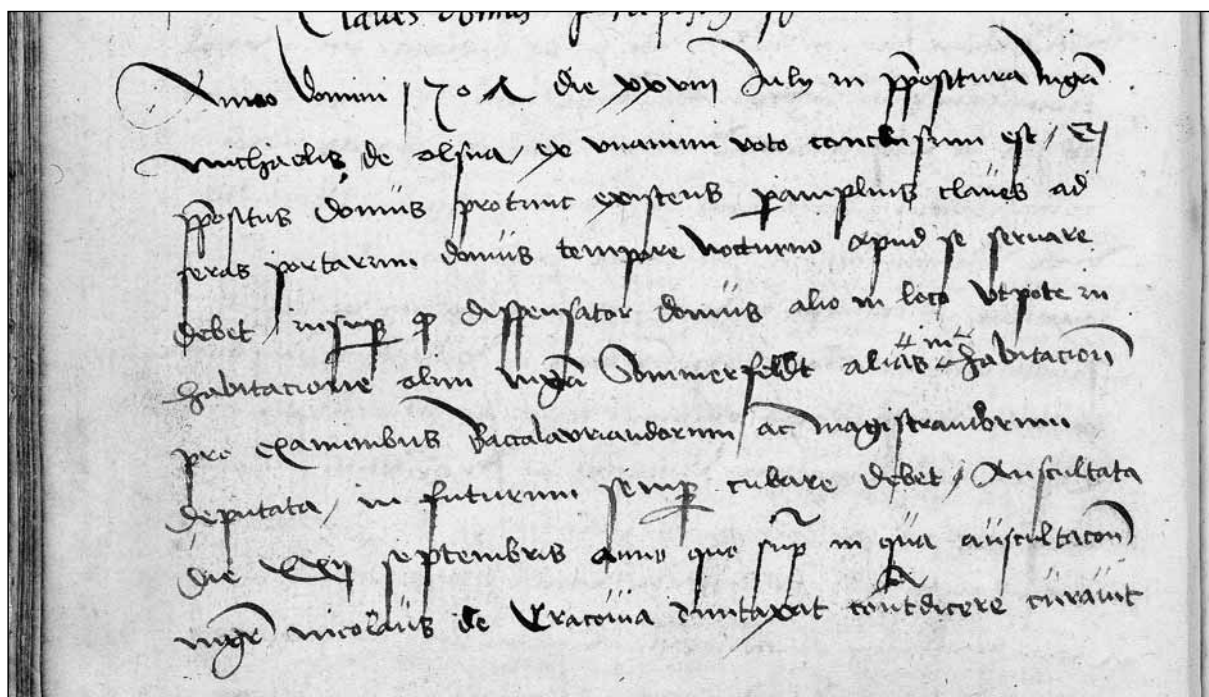 Claves domus
Anno domini 1504 die xxviii July in ppositura mgri
michaelis de olsna / ex vnanimi voto conclusum est / q
ppositus domus protunc existens pampluis claues ad
seras portarum domus tempore nocturno apud se seruare
debet / insup q dispensator domus alio in loco vtpote in
habitacione olim mgri Sommerfeldt alias in habitacion
pro examinibus Baccalauriandorum ac magistrandorum
deputata / in futurum semp cubare debet / Auscultata
die septembris anno quo sup in qua auscultacon
mgr nicolaus de Cracouia dumtaxat contdicere curauit